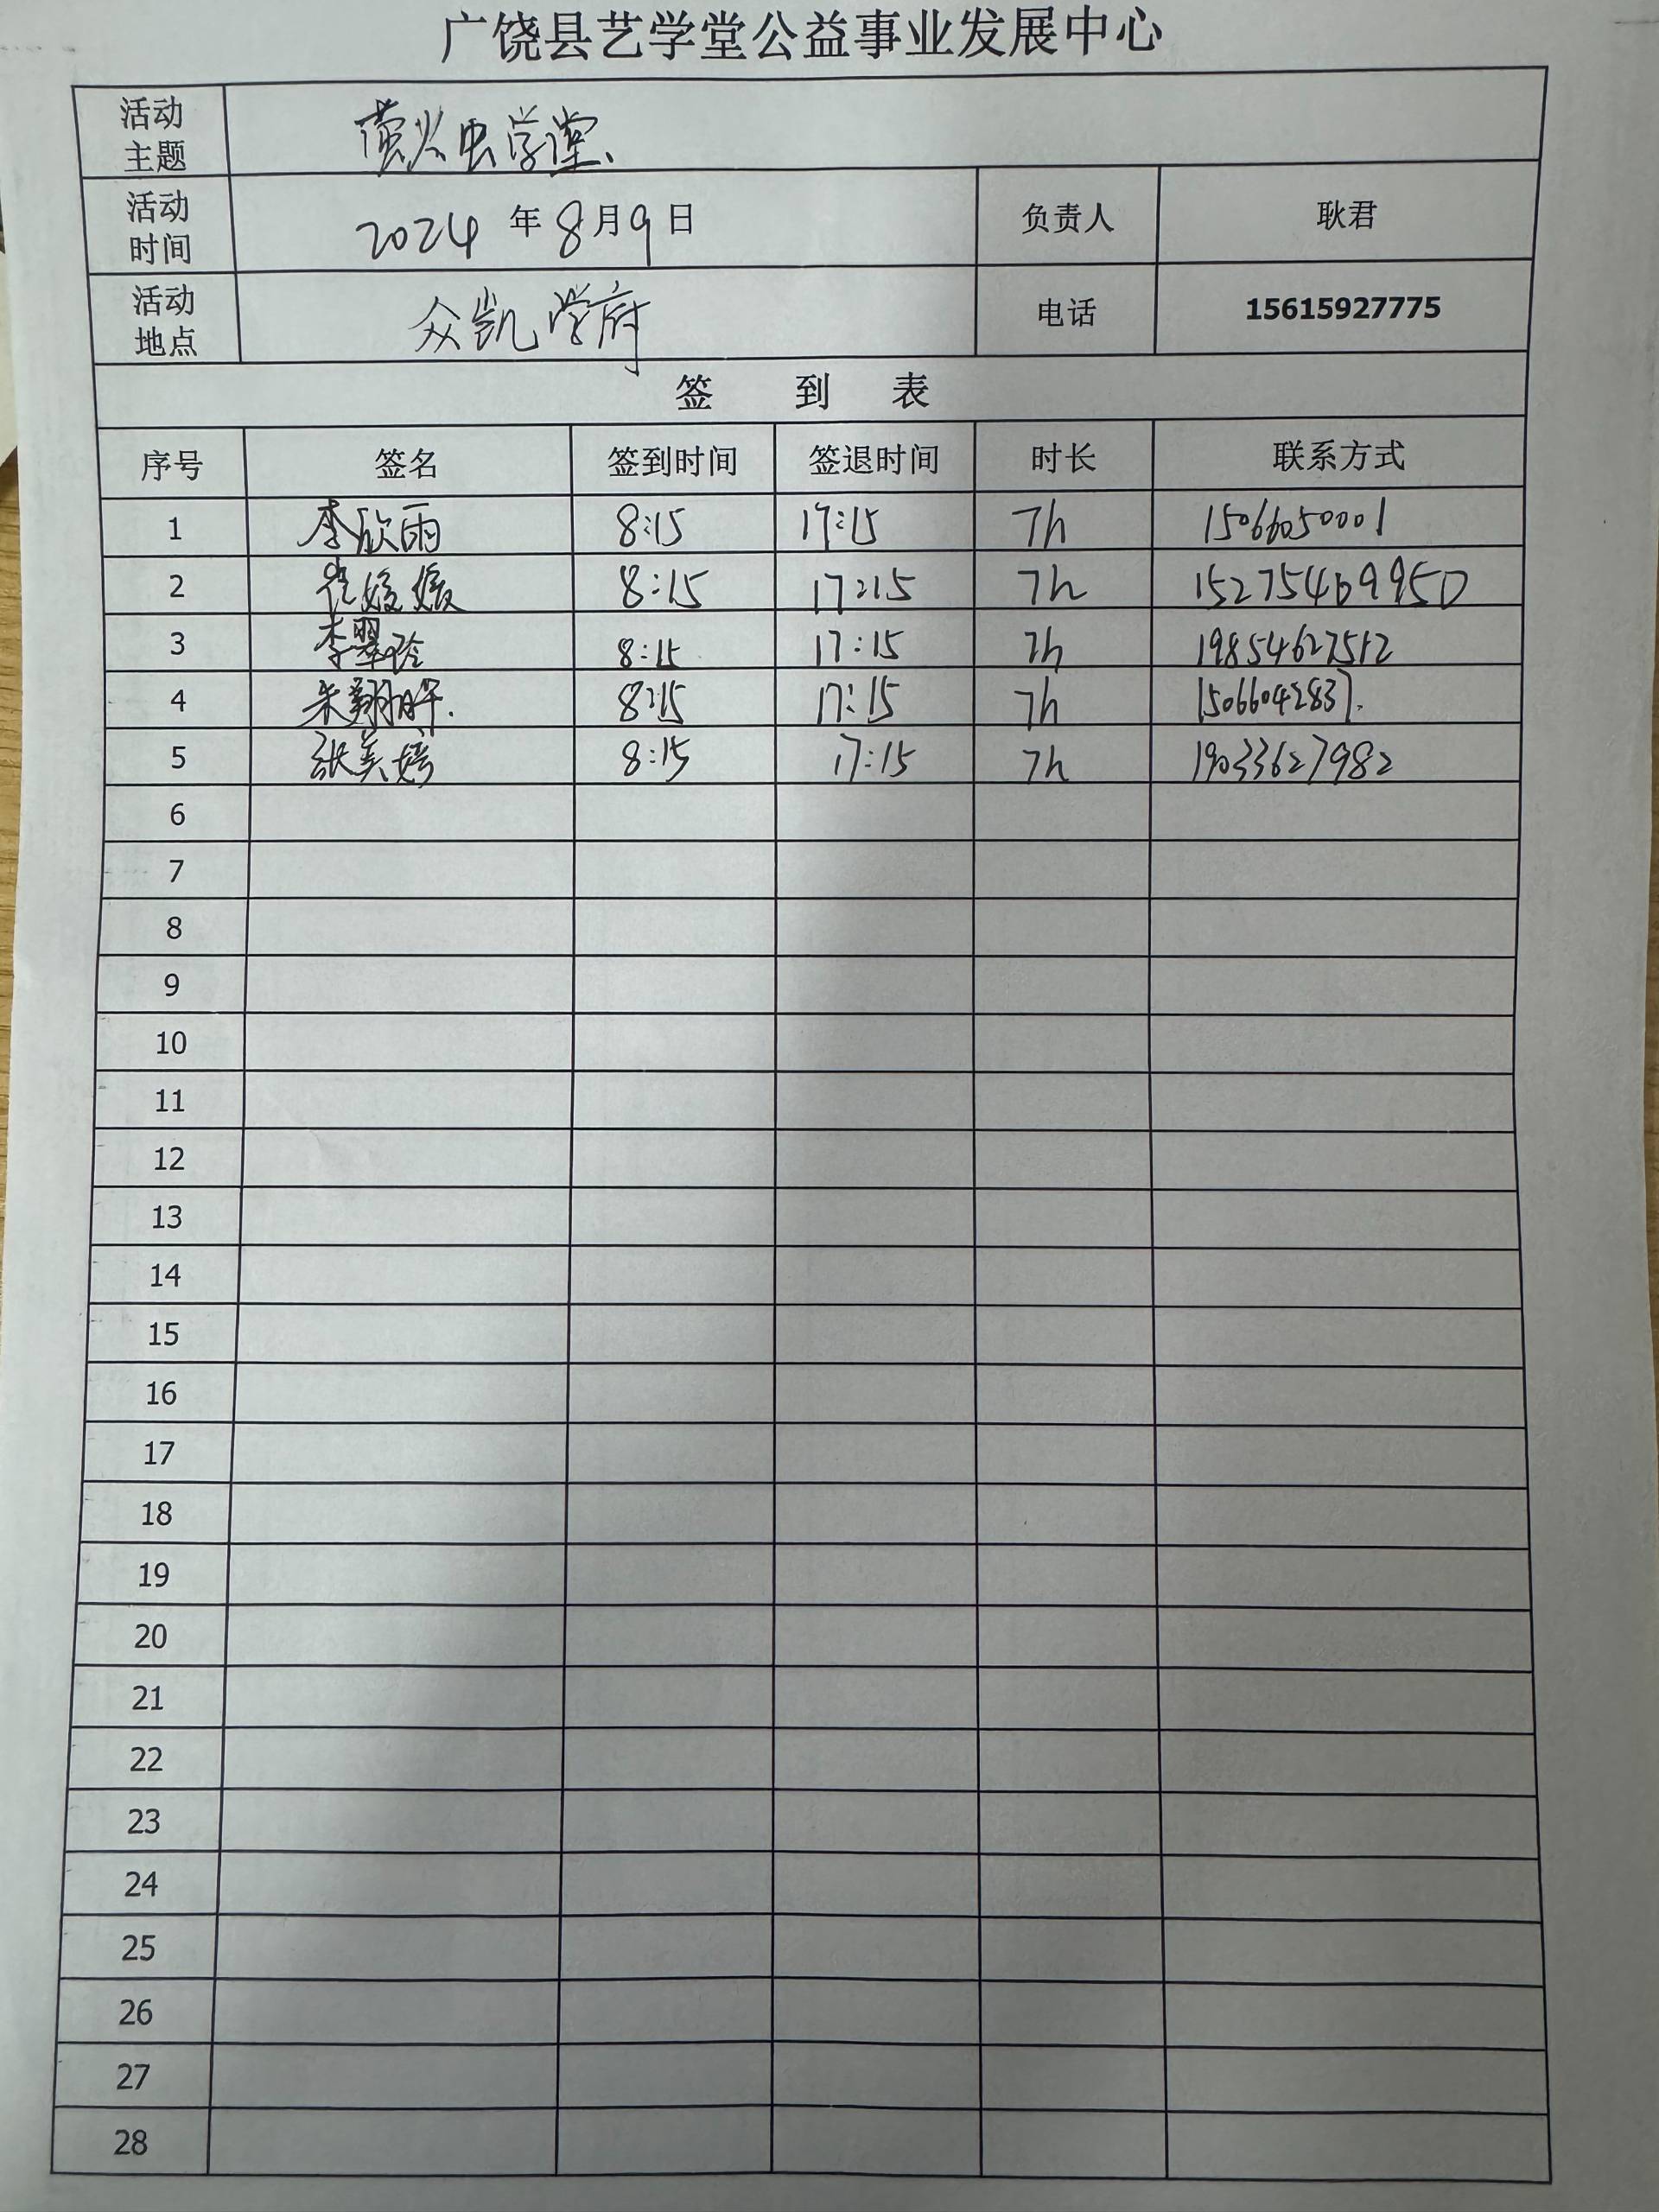 广饶县艺学堂公益事业发展中心
活动主题 萤火虫学堂
活动时间 2024年8月9日 负责人 耿君
活动地点 众凯学府 电话 15615927775
签 到 表
序号 签名 签到时间 签退时间 时长 联系方式
1 李欣雨 8:15 17:15 7h 15066050001
2 崔媛媛 8:15 17:15 7h 15275469950
3 李翠玲 8:15 17:15 7h 19854627512
4 朱翔 8:15 17:15 7h 15066042837.
5 张美婷 8:15 17:15 7h 19033627982
6
7
8
9
10
11
12
13
14
15
16
17
18
19
20
21
22
23
24
25
26
27
28